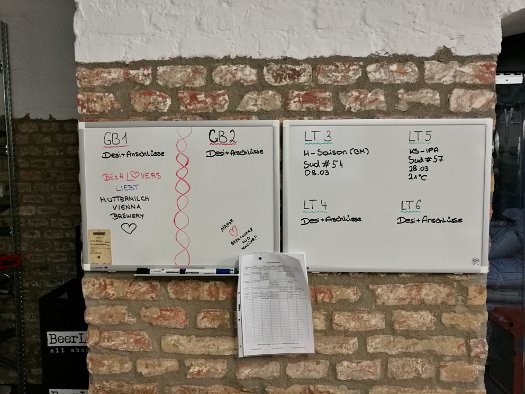 GB1
Desi+Anschlüsse
BEER LOVERS
LIEBT
MUTTERMILCH
VIENNA
BREWERY
GB2
Desi+Anschlüsse
LT 3
H-Saison (GM)
Sud #54
08.03
LT 5
KS-IPA
Sud #57
28.03
21°C
LT 4
Desi+Anschlüsse
LT 6
Desi+Anschlüsse
BeerL
all abo